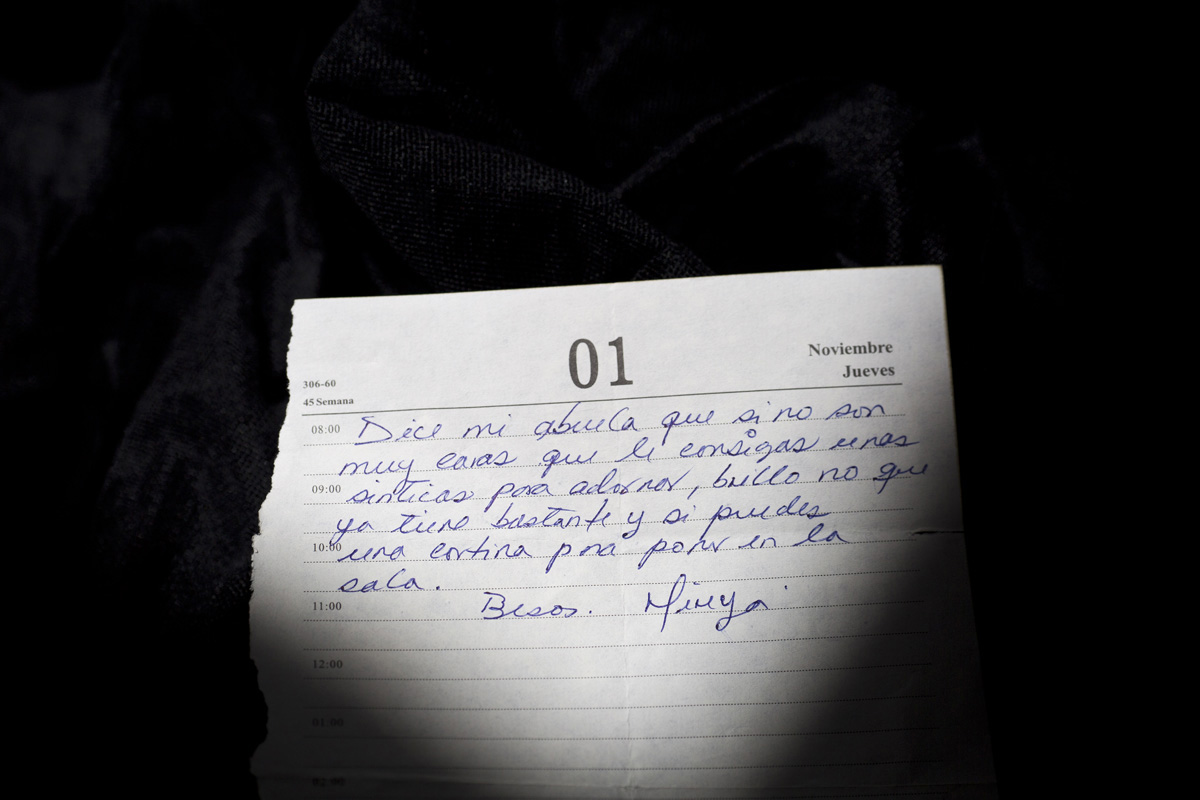 01
Noviembre
Jueves
306-60
45 Semana
08:00
Dice mi abuela que si no son
muy caras que le consigas unas
09:00
sinticas para adornar, brillo no que
ya tiene bastante y si puedes
10:00
una cortina para poner en la
sala.
11:00
Besos. Mireya
12:00
01:00
02:00